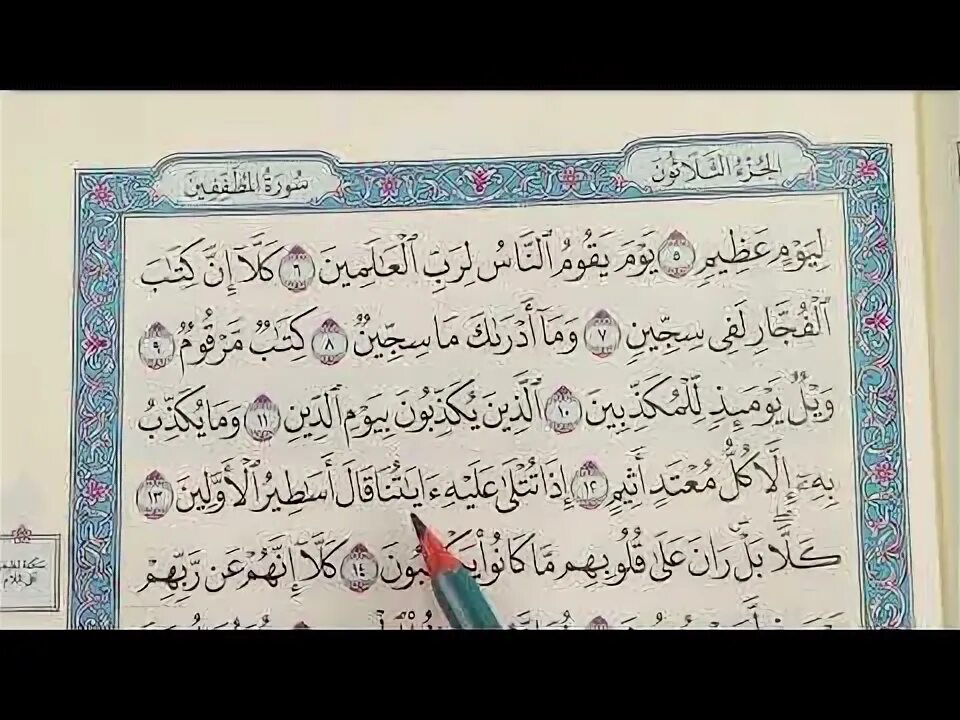 الجُزْءُ الثَّلَاثُونَ
سُورَةُ المُطَفِّفِينَ
لِيَوْمٍ عَظِيمٍ ٥ يَوْمَ يَقُومُ ٱلنَّاسُ لِرَبِّ ٱلْعَٰلَمِينَ ٦ كَلَّآ إِنَّ كِتَٰبَ
ٱلْفُجَّارِ لَفِى سِجِّينٍ ٧ وَمَآ أَدْرَىٰكَ مَا سِجِّينٌ ٨ كِتَٰبٌ مَّرْقُومٌ ٩
وَيْلٌ يَوْمَئِذٍ لِّلْمُكَذِّبِينَ ١٠ ٱلَّذِينَ يُكَذِّبُونَ بِيَوْمِ ٱلدِّينِ ١١ وَمَا يُكَذِّبُ
بِهِۦٓ إِلَّا كُلُّ مُعْتَدٍ أَثِيمٍ ١٢ إِذَا تُتْلَىٰ عَلَيْهِ ءَايَٰتُنَا قَالَ أَسَٰطِيرُ ٱلْأَوَّلِينَ ١٣
كَلَّا بَلْ رَانَ عَلَىٰ قُلُوبِهِم مَّا كَانُوا۟ يَكْسِبُونَ ١٤ كَلَّآ إِنَّهُمْ عَن رَّبِّهِمْ